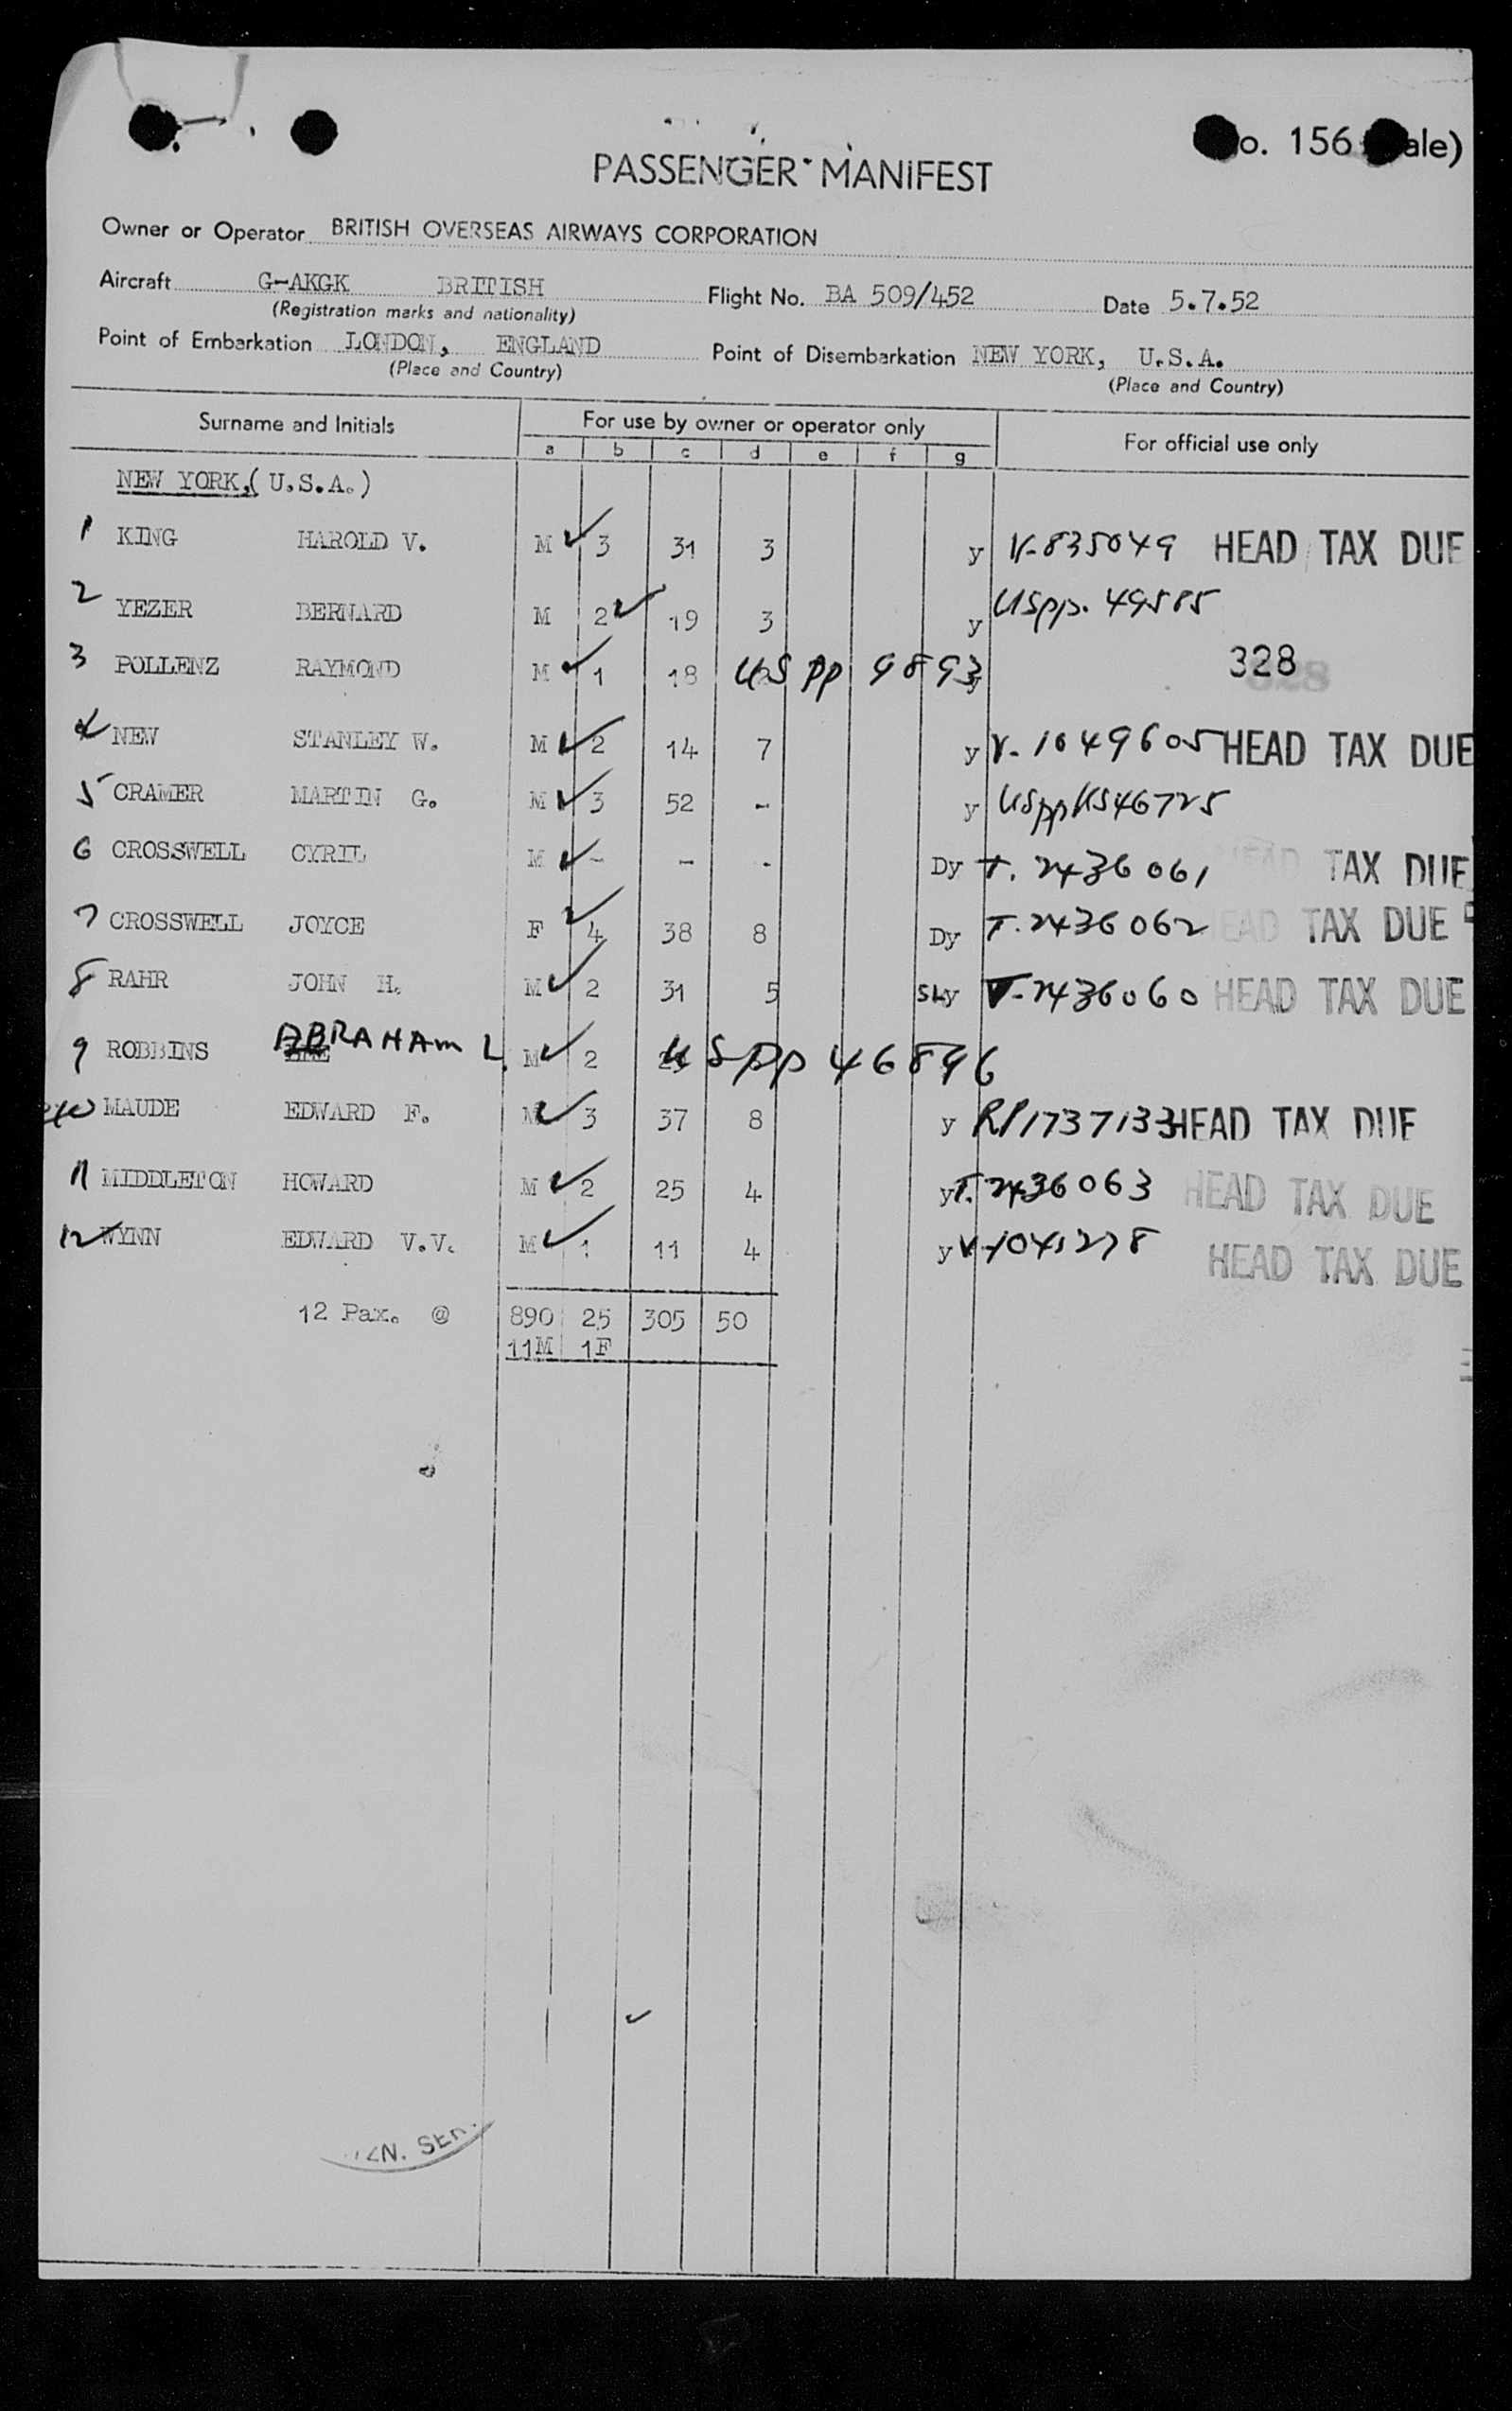 o. 156 ale)
PASSENGER MANIFEST
Owner or Operator BRITISH OVERSEAS AIRWAYS CORPORATION
Aircraft G-AKGK BRITISH Flight No. BA 509/452 Date 5.7.52
(Registration marks and nationality)
Point of Embarkation LONDON, ENGLAND Point of Disembarkation NEW YORK, U.S.A.
(Place and Country) (Place and Country)
Surname and Initials For use by owner or operator only For official use only
a b c d e f g
NEW YORK,( U.S.A.)
1 KING HAROLD V. M 3 31 3 y V-835049 HEAD TAX DUE
2 YEZER BERNARD M 2 19 3 y USpp. 49585
3 POLLENZ RAYMOND M 1 18 US pp 9893 328
4 NEW STANLEY W. M 2 14 7 y V-1049605 HEAD TAX DUE
5 CRAMER MARTIN G. M 3 52 - y USpp 46725
6 CROSSWELL CYRIL M - - - Dy T. 2436061 HEAD TAX DUE
7 CROSSWELL JOYCE F 4 38 8 Dy T. 2436062 HEAD TAX DUE
8 RAHR JOHN H. M 2 31 5 y V-2436060 HEAD TAX DUE
9 ROBBINS ABRAHAM L. M 2 US pp 46896
10 MAUDE EDWARD F. M 3 37 8 y RP1737133 HEAD TAX DUE
11 MIDDLETON HOWARD M 2 25 4 y T. 2436063 HEAD TAX DUE
12 WYNN EDWARD V.V. M 1 11 4 y V-1041278 HEAD TAX DUE
12 Pax. @ 890 25 305 50
11M 1F